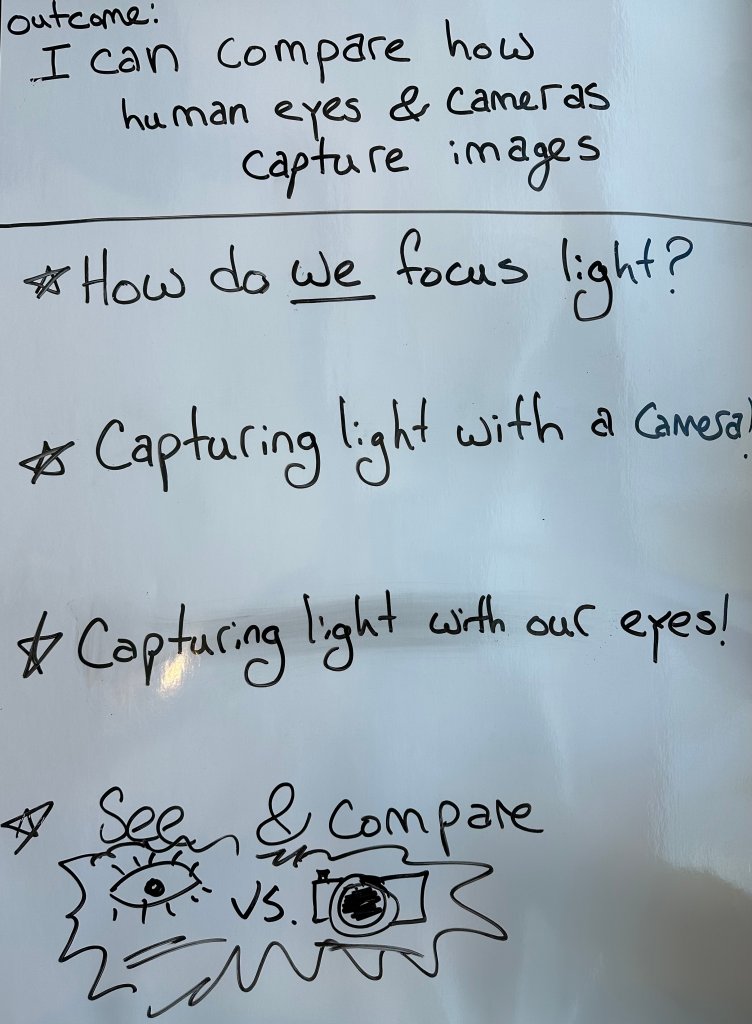 outcome:
I can compare how
human eyes & cameras
capture images
How do we focus light?
Capturing light with a Camera!
Capturing light with our eyes!
See & compare
vs.